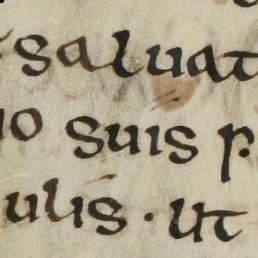 saluat
io suis p.
ulis · ut